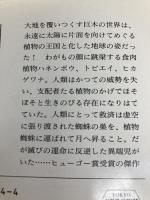 大地を覆いつくす巨木の世界は、
永遠に太陽に片面を向けてめぐる
植物の王国と化した地球の姿だっ
た！ わがもの顔に跳梁する食肉
植物ハネンボウ、トビエイ、ヒカ
ゲワナ。人類はかつての威勢を失
い、支配者たる植物のかげでほそ
ぼそと生きのびる存在になりはて
ていた。人類にとって救済は虚空
に張り渡された蜘蛛の巣を、植物
蜘蛛に運ばれて月へ昇ること。だ
が滅びの運命に反逆した異端児が
いた……ヒューゴー賞受賞の傑作
4-4
TOKYO